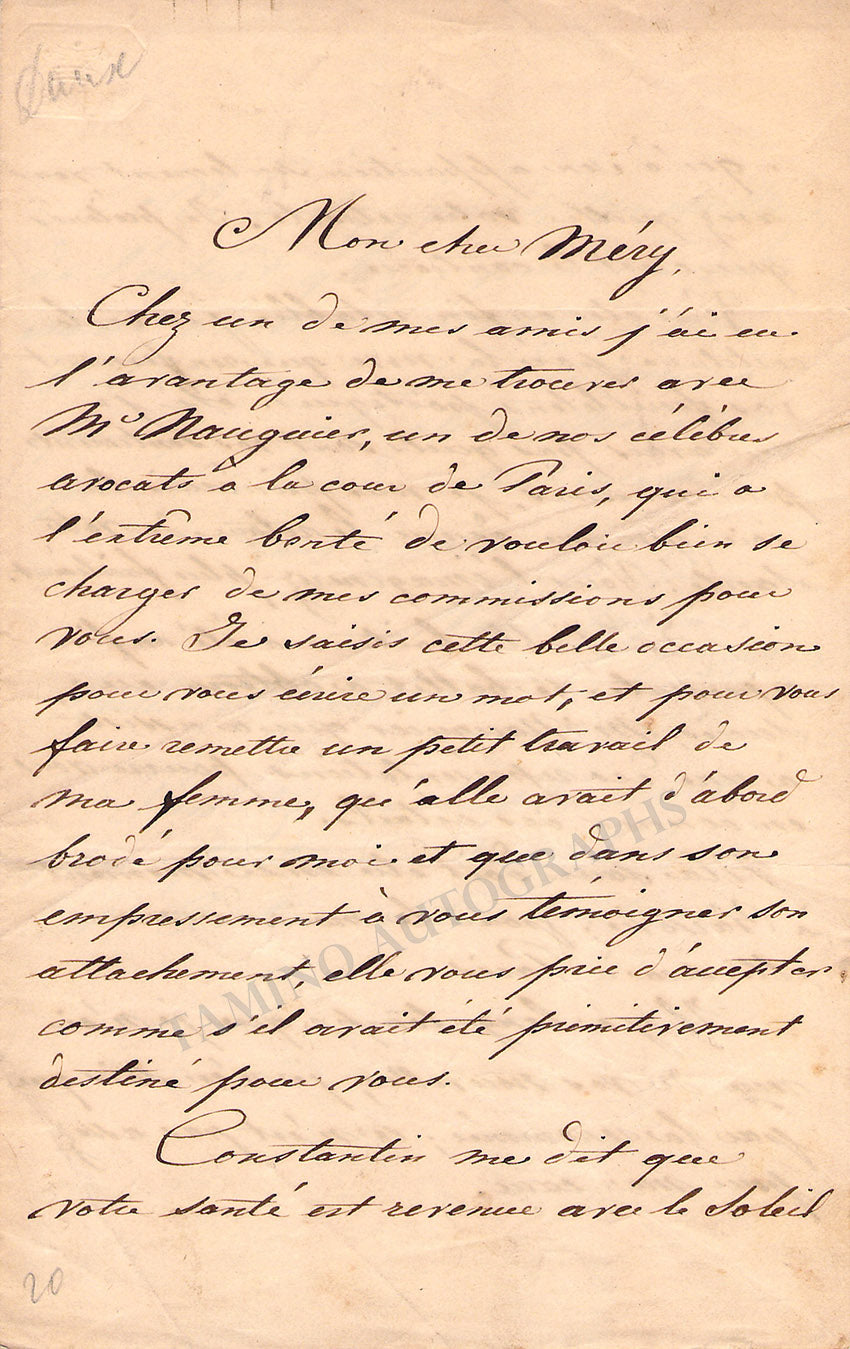 Mon cher Méry,
Chez un de mes amis j'ai eu
l'avantage de me trouver avec
Mr Nauguier, un de nos célèbres
avocats à la cour de Paris, qui a
l'extrême bonté de vouloir bien se
charger de mes commissions pour
vous. Je saisis cette belle occasion
pour vous écrire un mot, et pour vous
faire remettre un petit travail de
ma femme, qu'elle avait d'abord
brodé pour moi et que dans son
empressement à vous témoigner son
attachement, elle vous prie d'accepter
comme s'il avait été primitivement
destiné pour vous.
Constantin me dit que
votre santé est revenue avec le soleil
20
TAMINO AUTOGRAPHS